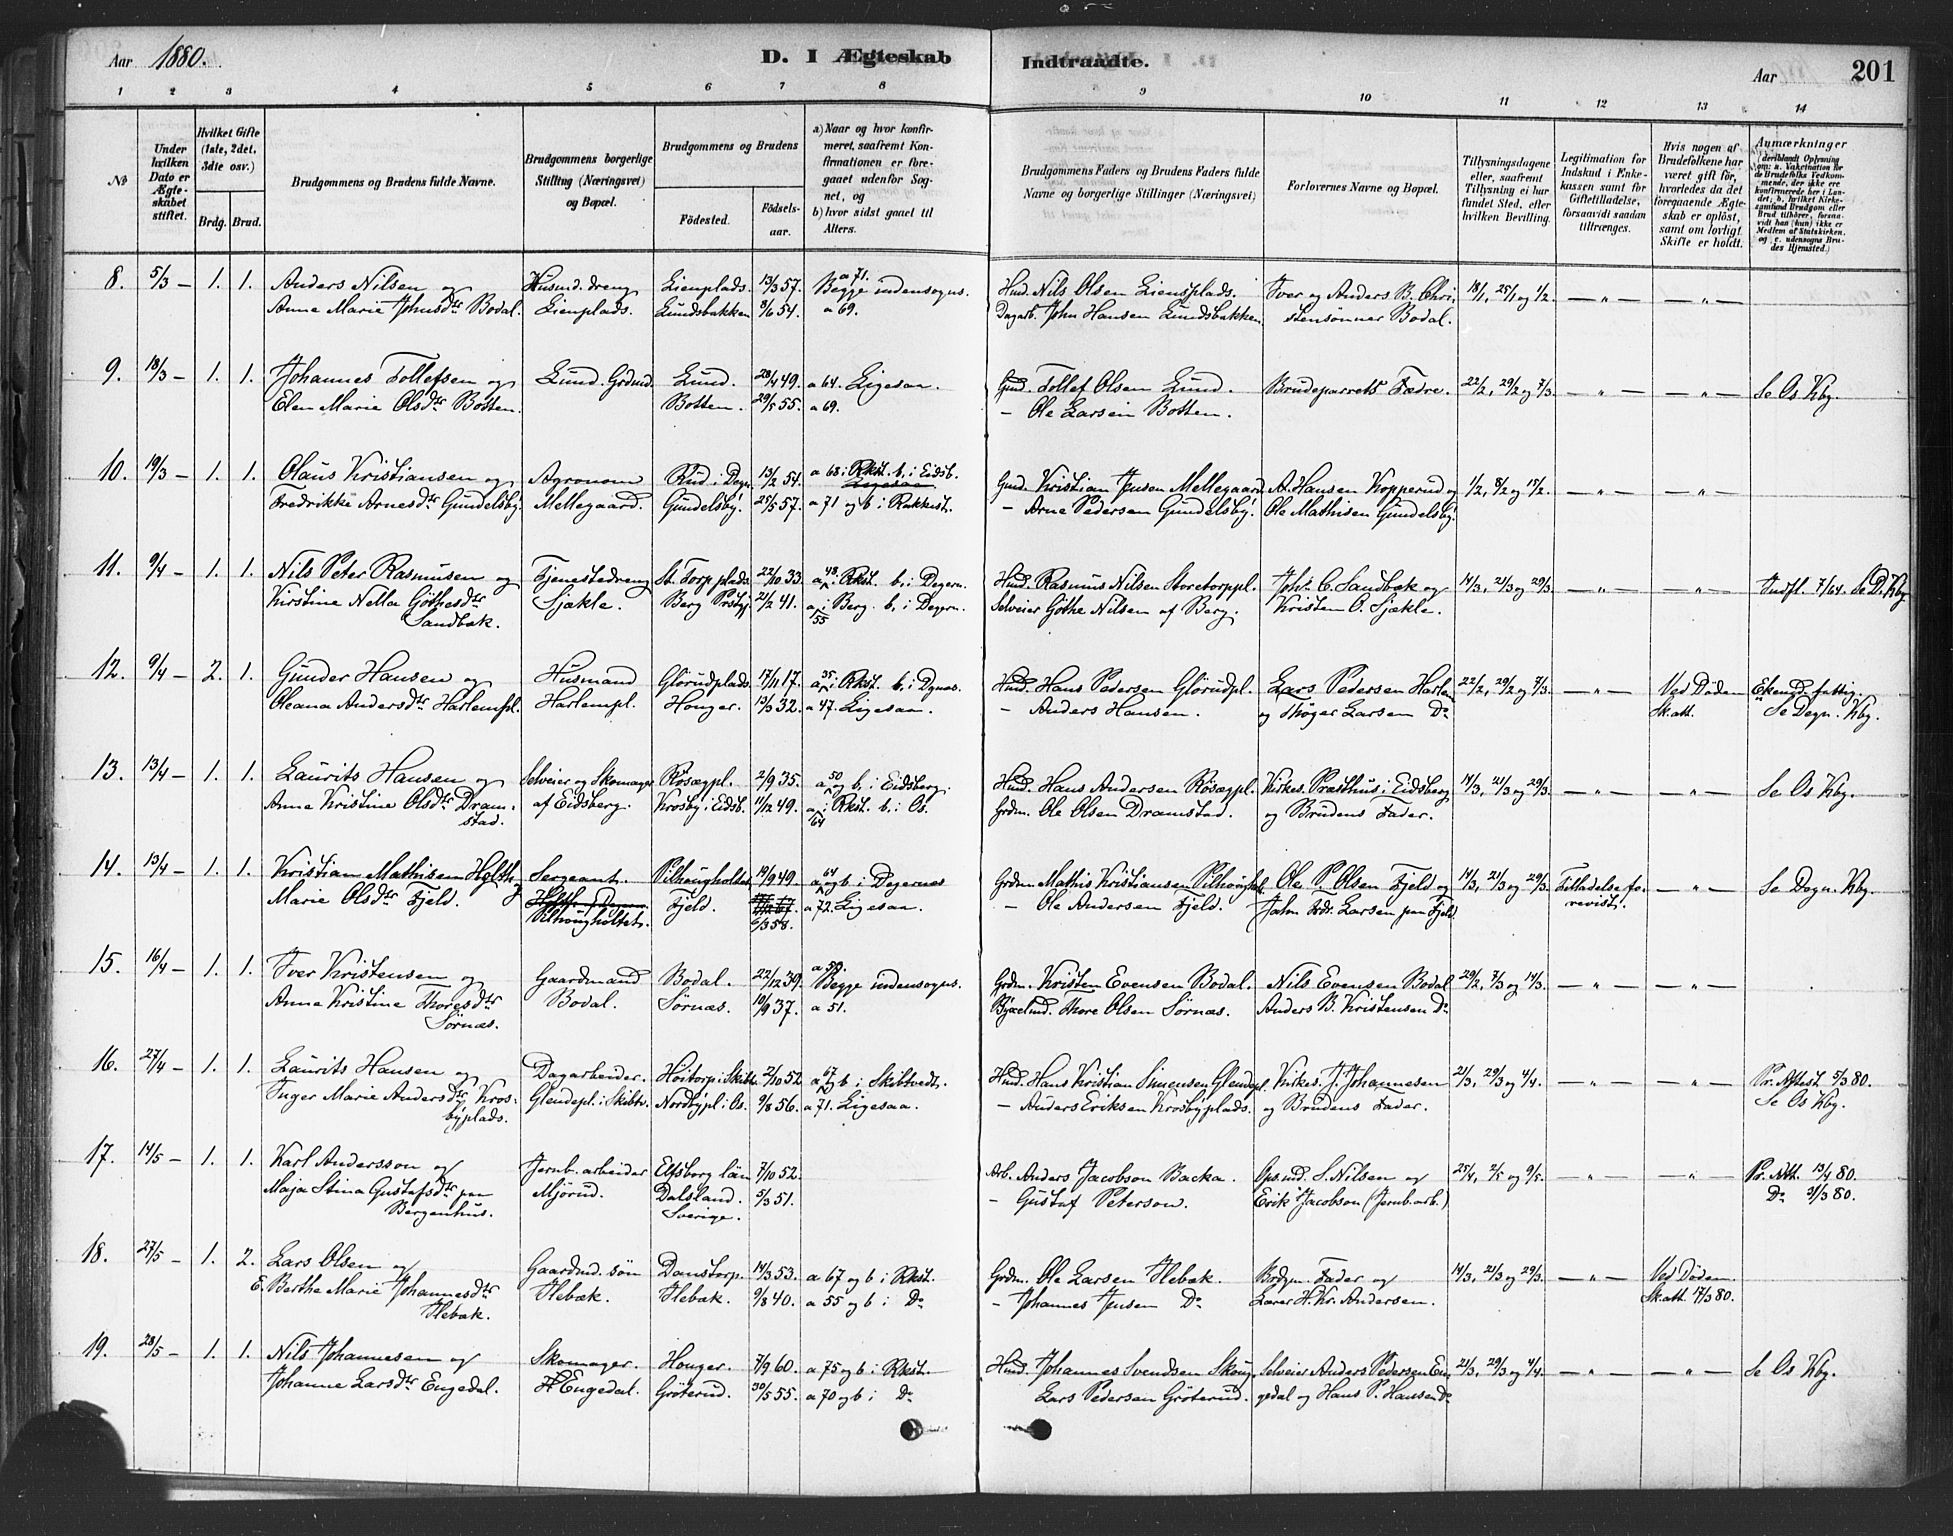 Aar 1880.
D. I Ægteskab Indtraadte.
Aar 201
1 2 3 4 5 6 7 8 9 10 11 12 13 14
№
Under hvilken Dato er Ægteskabet stiftet.
Hvilket Gifte (1ste, 2det, 3die osv.)
Brdg. Brud.
Brudgommens og Brudens fulde Navne.
Brudgommens borgerlige Stilling (Næringsvei) og Bopæl.
Brudgommens og Brudens
Fødested. Fødselsaar.
a) Naar og hvor konfirmeret, saafremt Konfirmationen er foregaaet udenfor Sognet, og
b) hvor sidst gaaet til Alters.
Brudgommens Faders og Brudens Faders fulde Navne og borgerlige Stillinger (Næringsvei)
Forlovernes Navne og Bopæl.
Tillysningsdagene eller, saafremt Tillysning ei har fundet Sted, efter hvilken Bevilling.
Legitimation for Indskud i Enkekassen samt for Giftetilladelse, forsaavidt saadan tiltrænges.
Hvis nogen af Brudefolkene har været gift før, hvorledes da det foregaaende Ægteskab er opløst, samt om lovligt Skifte er holdt.
Anmærkninger
8. 5/3 — 1. 1. Anders Nilsen og Husmd. dreng Lienplads. 13/3 57. a 71. Begge indensogns. Hud. Nils Olsen Liensplads. Iver og Anders B. Chri- 18/1, 25/1 og 1/2. — " — — " —
Anne Marie Johnsdtr Bodal. Lienplads. Lundsbakken 8/6 54. a 69. Dagarb. John Hansen Lundsbakken. stensönner Bodal.
9. 18/3 — 1. 1. Johannes Tollefsen og Lund. Grdmd. Lund. 28/4 49. a 64. Ligesaa. Gmd. Tollef Olsen Lund. Brudeparrets Fædre. 22/2, 29/2 og 7/3. — " — — " — Se Os Kbg.
Elen Marie Olsdtr Botten. Botten. 29/5 55. a 69. — Ole Larsen Botten.
10. 19/3 — 1. 1. Olaus Kristiansen og Agronom Rud i Degn. 13/2 54. a 68 i Rkst. b. i Eidsb. Gmd. Kristian Jensen Mellegaard A. Hansen Kopperud og 1/2, 8/2 og 15/2. — " — — " —
Fredrikke Arnesdtr Gundelsby. Mellegaard. Gundelsby. 25/5 57. a 71 og b i Rakkest. — Arne Pedersen Gundelsby. Ole Mathisen Gundelsby.
11. 9/4 — 1. 1. Nils Peter Rasmusen og Tjenestedreng St. Torp plads. 22/10 33. a 48. i Rkst. b. i Degern. Hud. Rasmus Nilsen Storetorppl. Johs. C. Sandbæk og 14/3, 21/3 og 29/3. — " — — " — Indfl. 7/64. Se D. Kbg.
Kirstine Nella Göthesdtr Sjækle. Berg Prstgj. 21/2 41. a i Berg. b. i Degern. 55 Selveier Göthe Nilsen af Berg. Kristen O. Sjækle.
Sandbæk.
12. 9/4 — 2. 1. Gunder Hansen og Husmand Glörudplads. 17/11 17. a 35. i Rkst. b. i Dgnæs. Hud. Hans Pedersen Glörudpl. Lars Pedersen Harlem 22/2, 29/2 og 7/3. — " — Ved Döden
Oleana Andersdtr Harlempl. Harlempl. Honger. 13/3 32. a 47. Ligesaa. — Anders Hansen. og Thöger Larsen Do Sk. att. Se Degn. Kbg.
13. 13/4 — 1. 1. Laurits Hansen og Selveier og Skomager Rösægpl. 2/9 35. a 50 og b. i Eidsberg. Hud. Hans Andersen Rösægpl. Kirkes. Præsthus i Eidsberg 14/3, 21/3 og 29/3. — " — — " — Se Os Kbg.
Anne Kristine Olsdtr Dram- af Eidsberg. Krosby i Eidsb. 11/12 49. a i Rkst. b. i Os. 64 Grdm. Ole Olsen Dramstad. og Brudens Fader.
stad.
14. 13/4 — 1. 1. Kristian Mathisen Hglth og Sergeant. Pilhougholtet 19/9 49. a 64 og b i Degernes Grdm. Mathis Kristiansen Pilhougholt. Ole P. Olsen Fjeld og 14/3, 21/3 og 29/3. Tilladelse fo- — " — Se Degn. Kbg.
Marie Olsdtr Fjeld. Pilhougholtet. Fjeld. 6/3 58. a 72. Ligesaa. — Ole Andersen Fjeld. Larsen paa Fjeld revist.
15. 16/4 — 1. 1. Iver Kristensen og Gaardmand Bodal. 22/12 39. Begge indensogns. Grdm. Kristen Evensen Bodal. Nils Evensen Bodal 29/2, 7/3 og 14/3. — " — — " —
Anna Kristine Thoresdtr Bodal. Sörnæs. 10/9 37. a 51. Thore Olsen Sörnæs. Anders B. Kristensen Do
Sörnæs.
16. 27/4 — 1. 1. Laurits Hansen og Dagarbeider. Höitorp i Skibt. 2/10 52 a 67 og b i Skibtvedt. Hud. Hans Kristian Simensen Glendepl. Kirkes. J. Johannesen 21/3, 29/3 og 4/4. — " — — " — Pr. Attest 5/3 80.
Inger Marie Andersdtr Kros- Glendepl. i Skibtv. Nordbypl. i Os. 9/8 56. a 71. Ligesaa. — Anders Eriksen Krosbyplads. og Brudens Fader. Se Os Kbg.
byplads.
17. 14/5 — 1. 1. Karl Andersson og Jernb. arbeider Elfsborg län 7/10 52. Arb. Anders Jacobson Backa. Ops.md. S. Nilsen og 25/4, 2/5 og 9/5. — " — — " — Pr. Att. 13/4 80.
Maja Stina Gustafsdtr paa Mjörud. Dalsland. 5/3 51. — Gustaf Peterson. Erik Jacobson (Jernb.arb.) Do 31/3 80.
Bergenhus. Sverige.
18. 27/5 — 1. 2. Lars Olsen og Gaardmd. sön Danstorp. 14/3 53. a 67 og b i Rkst. Grdm. Ole Larsen Hebæk. Brdgm. Fader og 14/3, 21/3 og 29/3. — " — Ved Döden
E. Berthe Marie Johannesdtr Hebæk. Hebæk. 9/8 40. a 55 og b i Do — Johannes Jensen Do Lærer H. Kr. Andersen. Sk. att. 17/3 80.
Hebæk.
19. 28/5 — 1. 1. Nils Johannesen og Skomager. Honger. 7/9 60. a 75 og b i Rkst. Hud. Johannes Svendsen Skoug. Selveier Anders Pedersen En- 21/3, 29/3 og 4/4. — " — — " — Se Os Kbg.
Johanne Larsdtr Engedal. Engedal. Gröterud. 30/5 55. a 70 og b i Do Lars Pedersen Gröterud. gedal og Hans P. Hansen Do